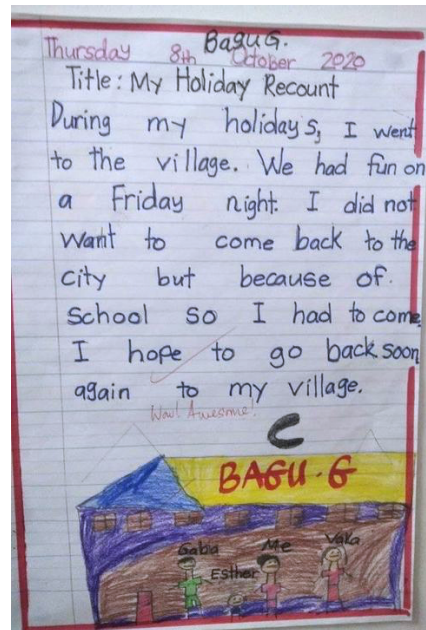 Bagu G.
Thursday 8th October 2020
Title: My Holiday Recount
During my holidays, I went
to the village. We had fun on
a Friday night. I did not
want to come back to the
city but because of.
School so I had to come.
I hope to go back soon
again to my village.
Wow! Awesome!
C
BAGU. G
Gabia Me Vaka
Esther